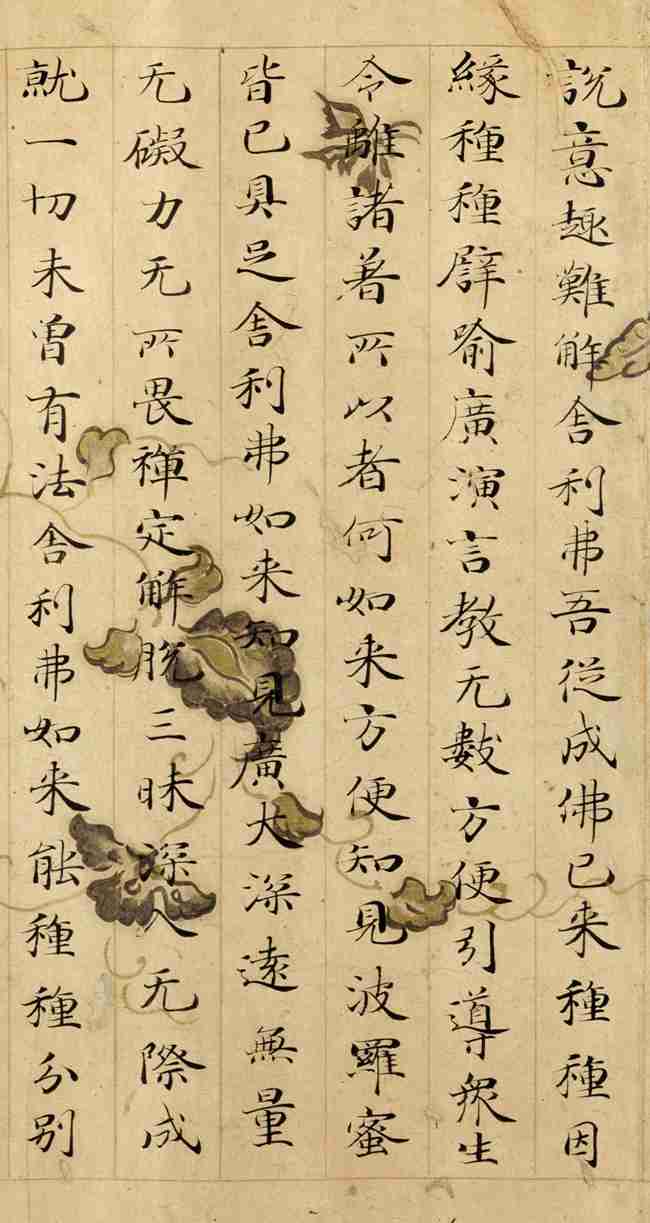 說意趣難解舍利弗吾從成佛已来種種因
緣種種譬喻廣演言教无數方便引導衆生
令離諸著所以者何如来方便知見波羅蜜
皆已具足舍利弗如来知見廣大深遠無量
无礙力无所畏禪定解脫三昧深入无際成
就一切未曾有法舍利弗如来能種種分别